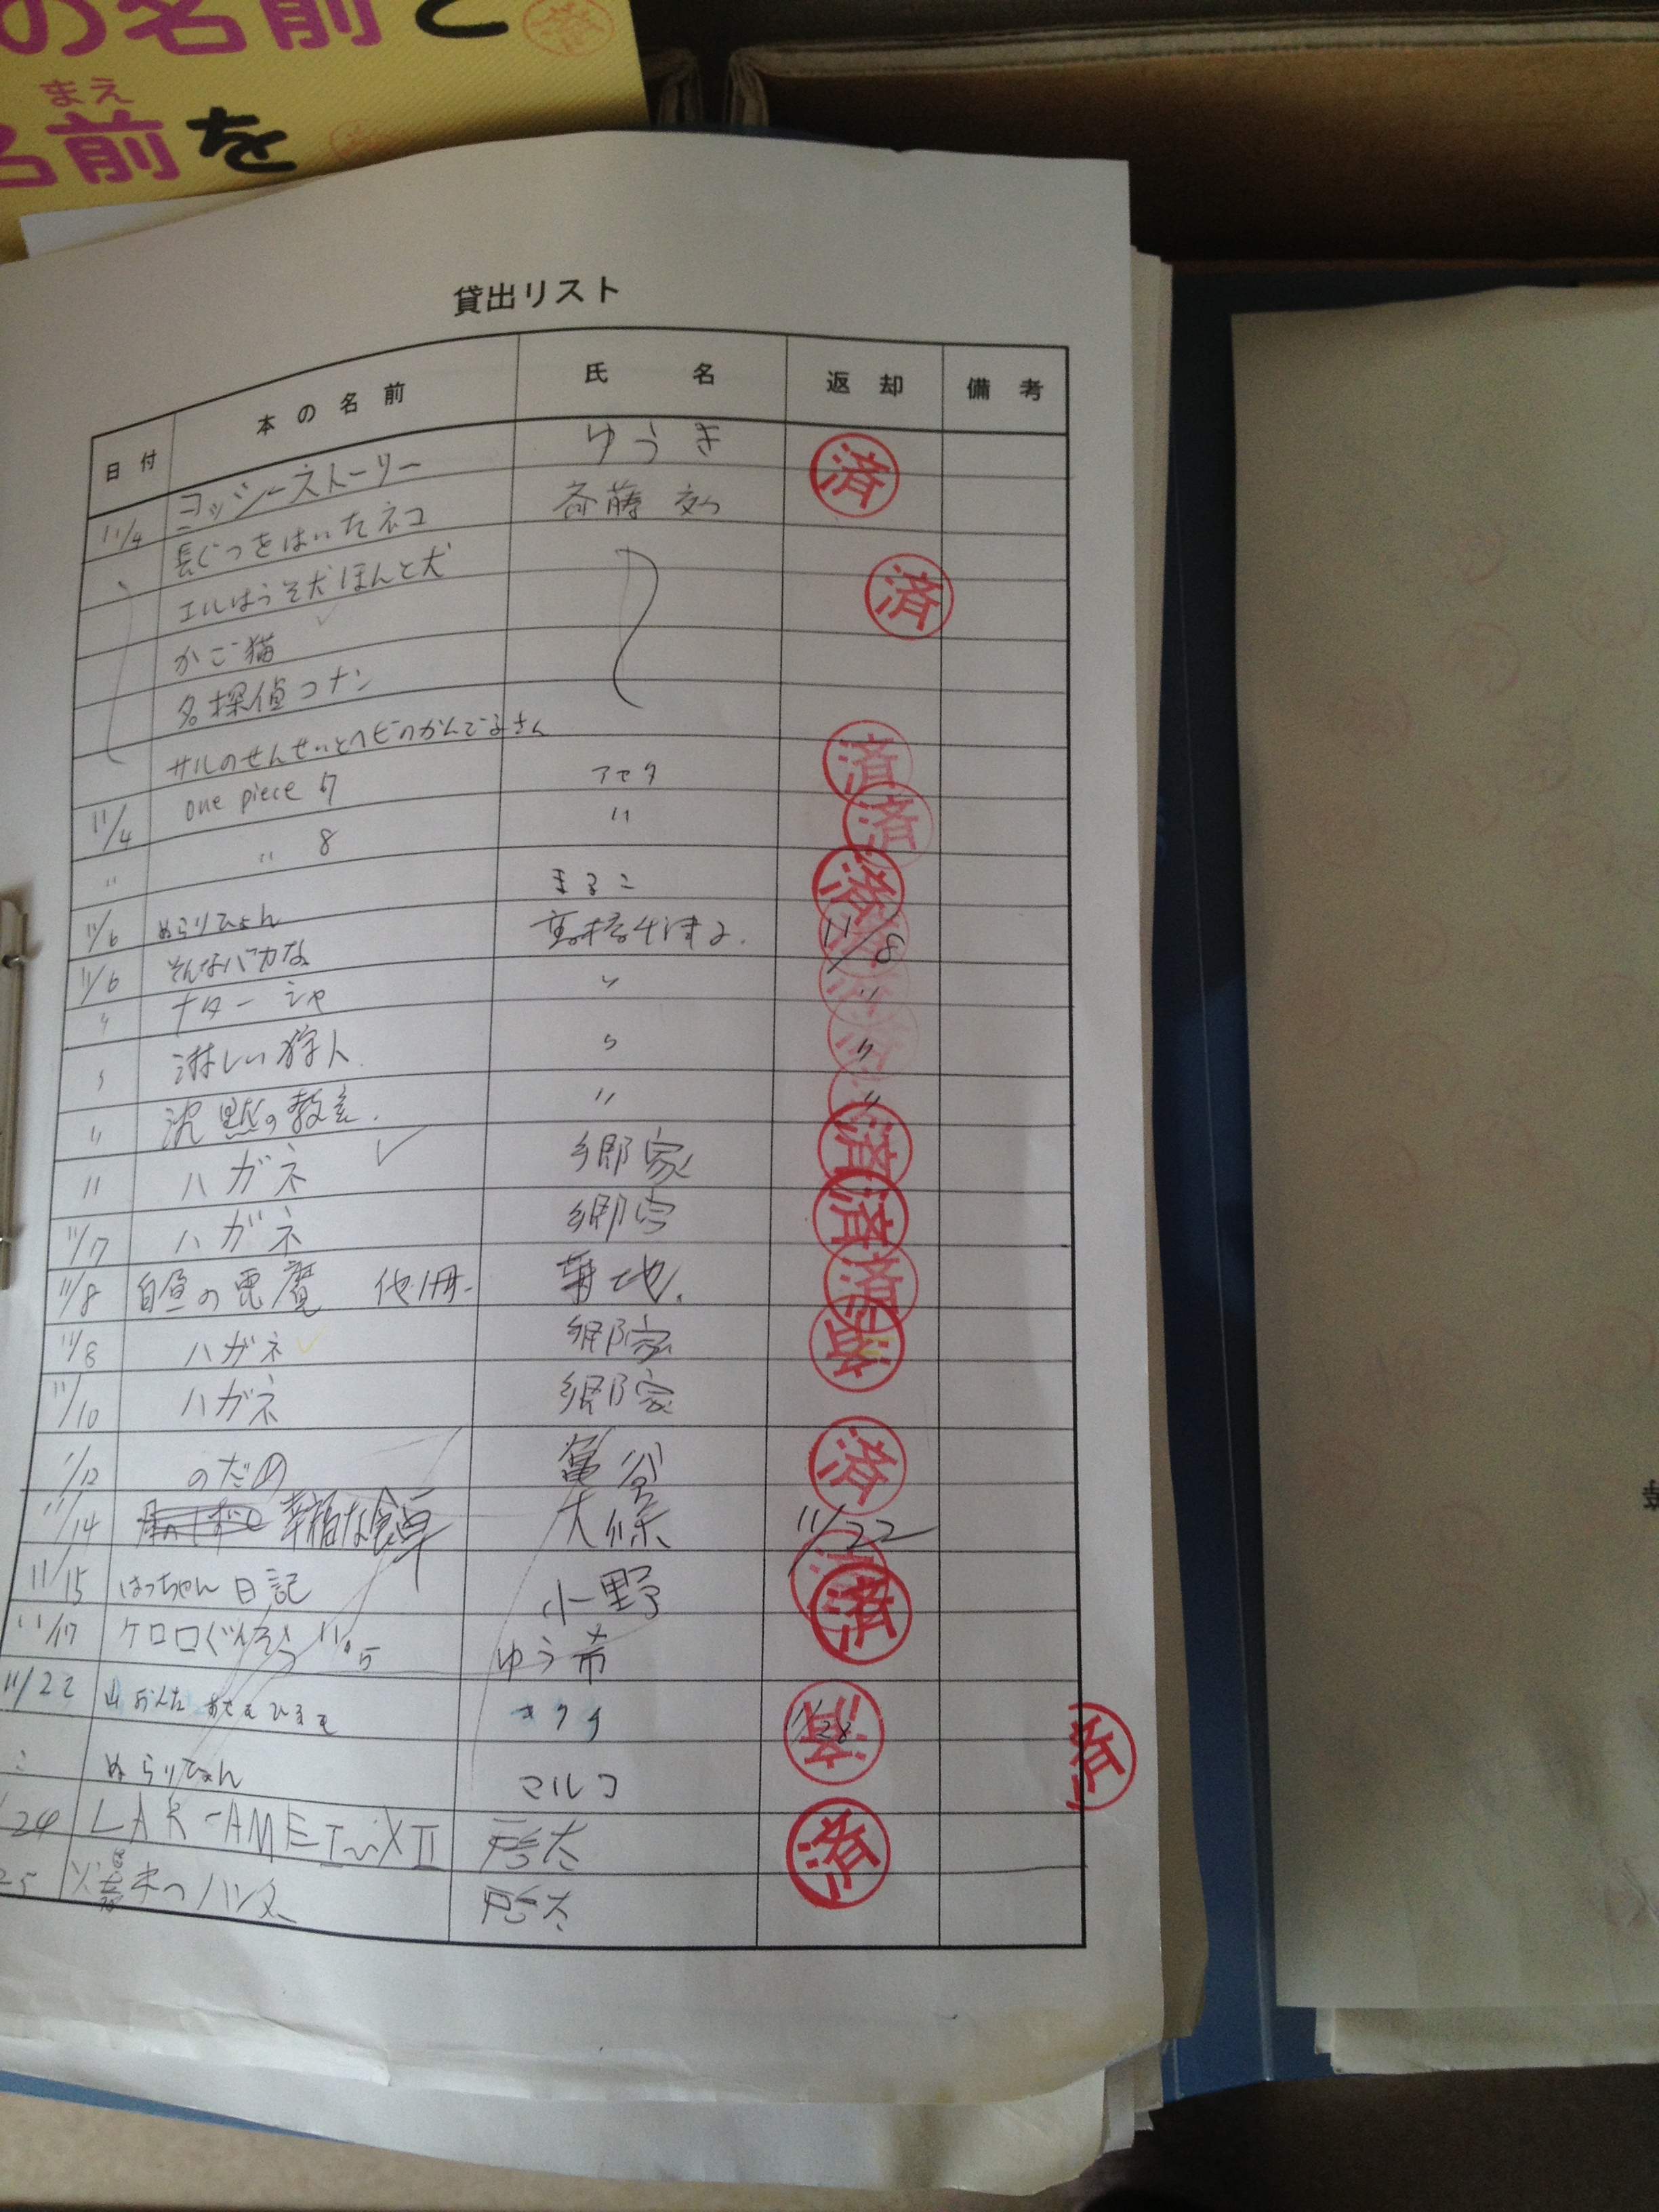 の名前と
まえ
名前を
貸出リスト
日付 本の名前 氏名 返却 備考
11/4 ヨッシーストーリー ゆうき 済
長ぐつをはいたネコ 斉藤
エルはうそ犬ほんと犬 済
かご猫
名探偵コナン
サルのせんせいとヘビのかんごふさん 済
11/4 one piece 7 アセタ 済
〃 〃 8 〃 済
11/6 ぬらりひょん まるこ 済
11/6 そんなバカな 11/8
〃 ナターシャ 〃 〃
〃 淋しい狩人 〃 〃
〃 沈黙の教室 〃 〃
11 ハガネ 郷家 済
11/7 ハガネ 郷家 済
11/8 白昼の悪魔 他1冊 菊地 済
11/8 ハガネ 郷家 済
11/10 ハガネ 郷家
11/12 のだめ 亀谷 済
11/14 幸福な食卓 大條 11/22
11/15 はっちゃん日記 小野 済
11/17 ケロロぐんそう 11.5 ゆう希 済
11/22 山おんな おさるのひるま 11/28 済
ぬらりひょん マルコ 済
24 LAR-AME I~XII 啓太 済
25 啓太